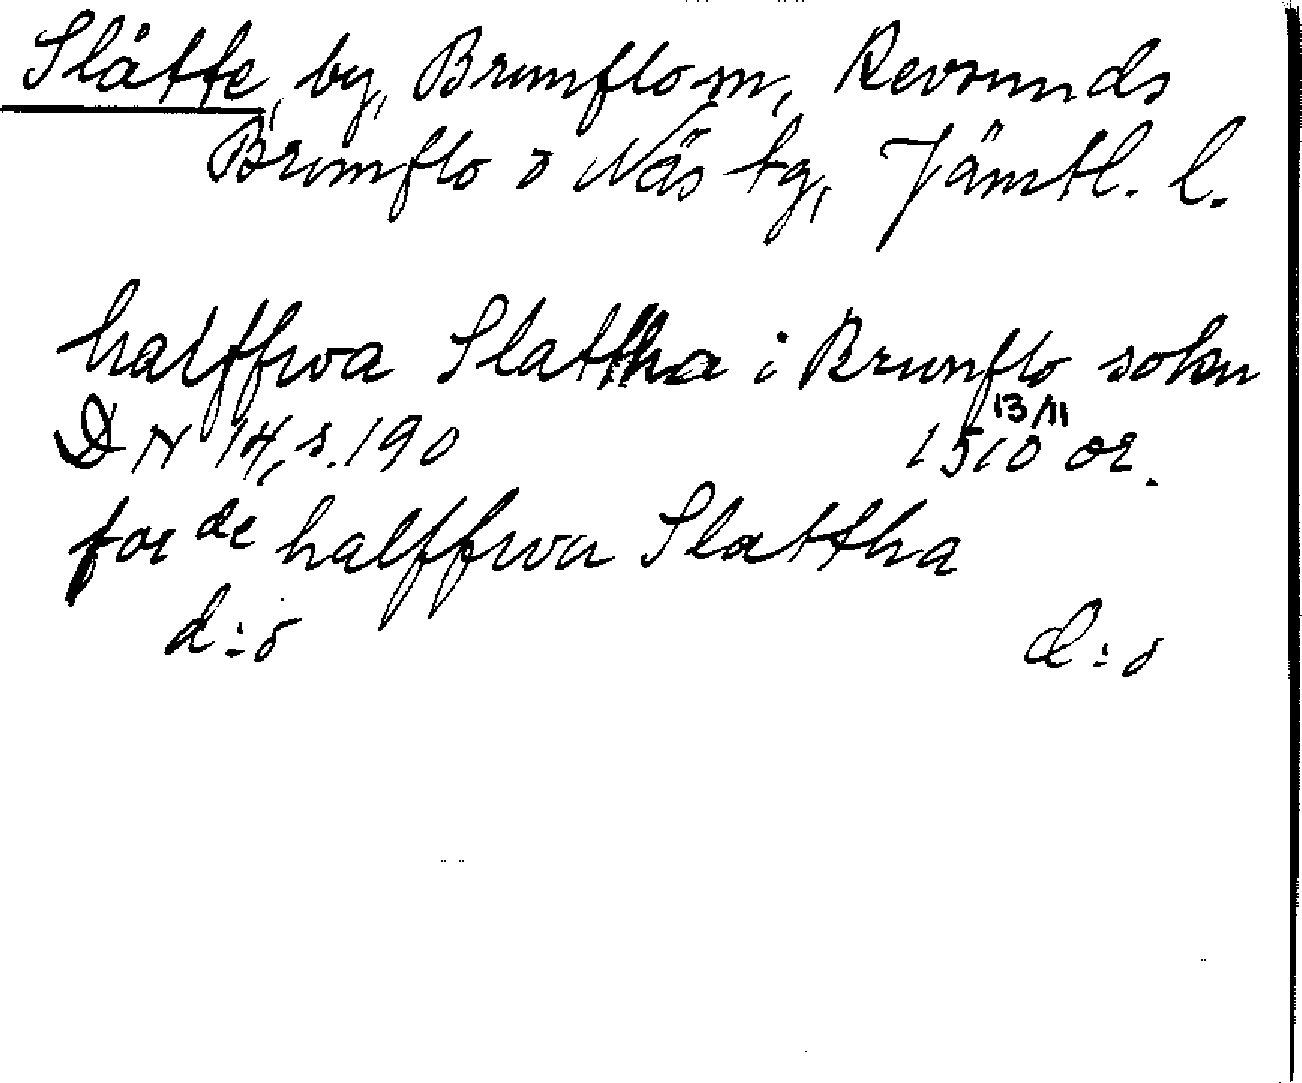 Slåtte, by, Brunflo sn, Revsunds
Brunflo o Näs tg, Jämtl. l.
halffwa Slattha i Brunflo sokn
DN 14, s. 190 1510 13/11 or.
for de halffwa Slattha
d:o d:o